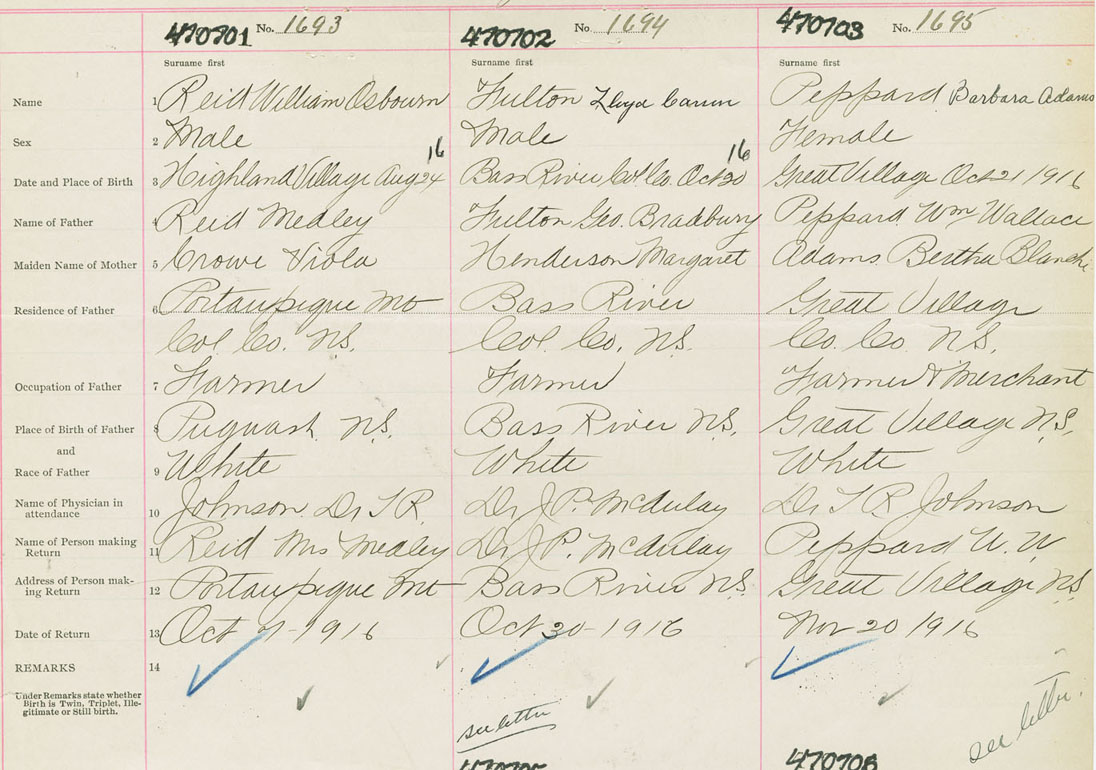 470701 No. 1693 470702 No. 1694 470703 No. 1695
Surname first Surname first Surname first
Name 1 Reid William Osbourn Fulton Lloyd Peppard Barbara Adams
Sex 2 Male Male Female
16 16
Date and Place of Birth 3 Highland Village Aug 24 Bass River Col. Co. Oct 20 Great Village Oct 21 1916
Name of Father 4 Reid Medley Fulton Geo. Bradbury Peppard Wm Wallace
Maiden Name of Mother 5 Crowe Viola Henderson Margaret Adams Bertha Blanche
Residence of Father 6 Portaupique Mt Bass River Great Village
Col. Co. N.S. Col. Co. N.S. Co. Co. N.S.
Occupation of Father 7 Farmer Farmer Farmer & Merchant
Place of Birth of Father 8 Pugwash N.S. Bass River N.S. Great Village N.S.
and
Race of Father 9 White White White
Name of Physician in
attendance 10 Johnson Dr T.R. Dr J.P. McAulay Dr T R Johnson
Name of Person making
Return 11 Reid Mrs Medley Dr J P. McAulay Peppard W. W
Address of Person mak-
ing Return 12 Portaupique Mt Bass River N.S. Great Village N.S.
Date of Return 13 Oct 1916 Oct 30 - 1916 Nov 20 1916
REMARKS 14
Under Remarks state whether
Birth is Twin, Triplet, Ille-
gitimate or Still birth.
see letter see letter.